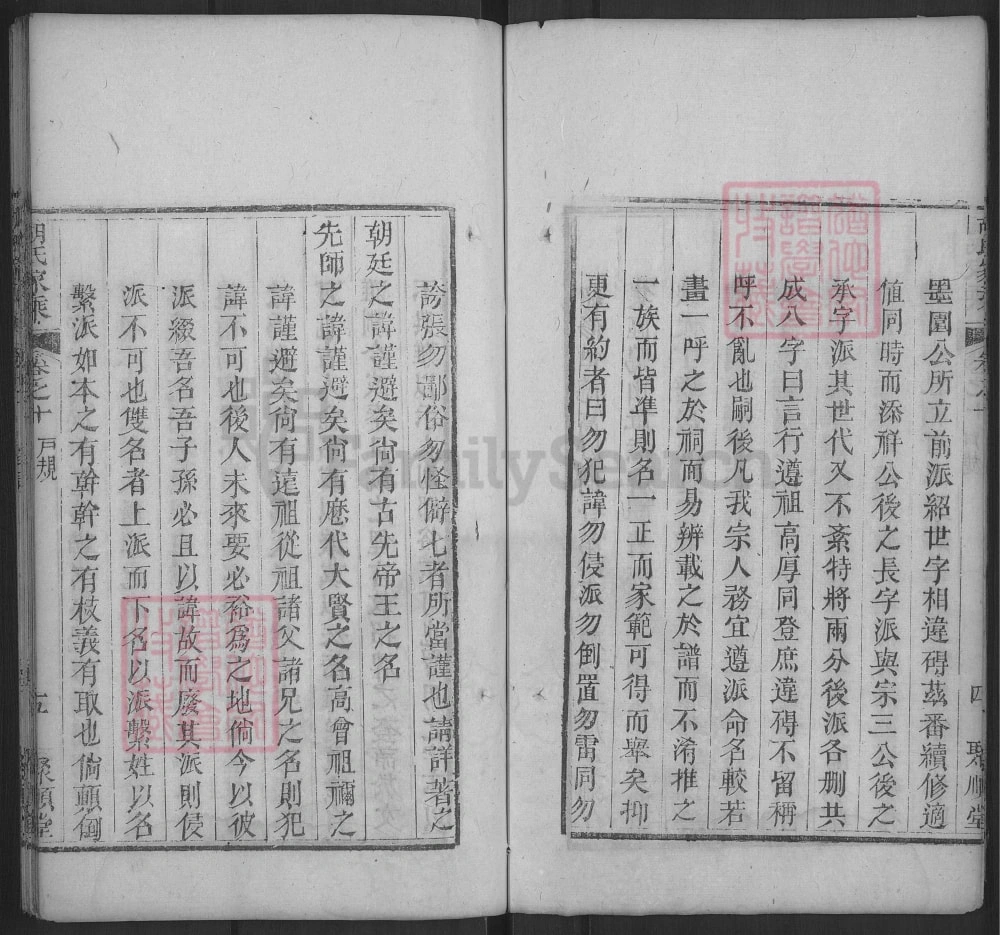 墨園公所立前派紹世字相違碍茲番續修適
値同時而添祥公後之長字派與宗三公後之
承字派其世代又不紊特將兩分後派各删共
成八字曰言行遵祖高厚同登庶違碍不留稱
呼不亂也嗣後凡我宗人務宜遵派命名較若
畫一呼之於祠而易辨載之於譜而不淆推之
一族而皆凖則名一正而家範可得而舉矣抑
更有約者曰勿犯諱勿侵派勿倒置勿雷同勿
四
聚順堂
誇張勿鄙俗勿怪僻七者所當謹也請詳著之
朝廷之諱謹避矣尙有古先帝王之名
先師之諱謹避矣尙有歷代大賢之名高曾祖禰之
諱謹避矣尙有遠祖從祖諸父諸兄之名則犯
諱不可也後人未來要必裕爲之地倘今以彼
派綴吾名吾子孫必且以諱故而廢其派則侵
派不可也雙名者上派而下名以派繫姓以名
繫派如本之有幹幹之有枝義有取也倘顚倒
胡氏家乘
卷之十
戸規
五
聚順堂
FamilySearch